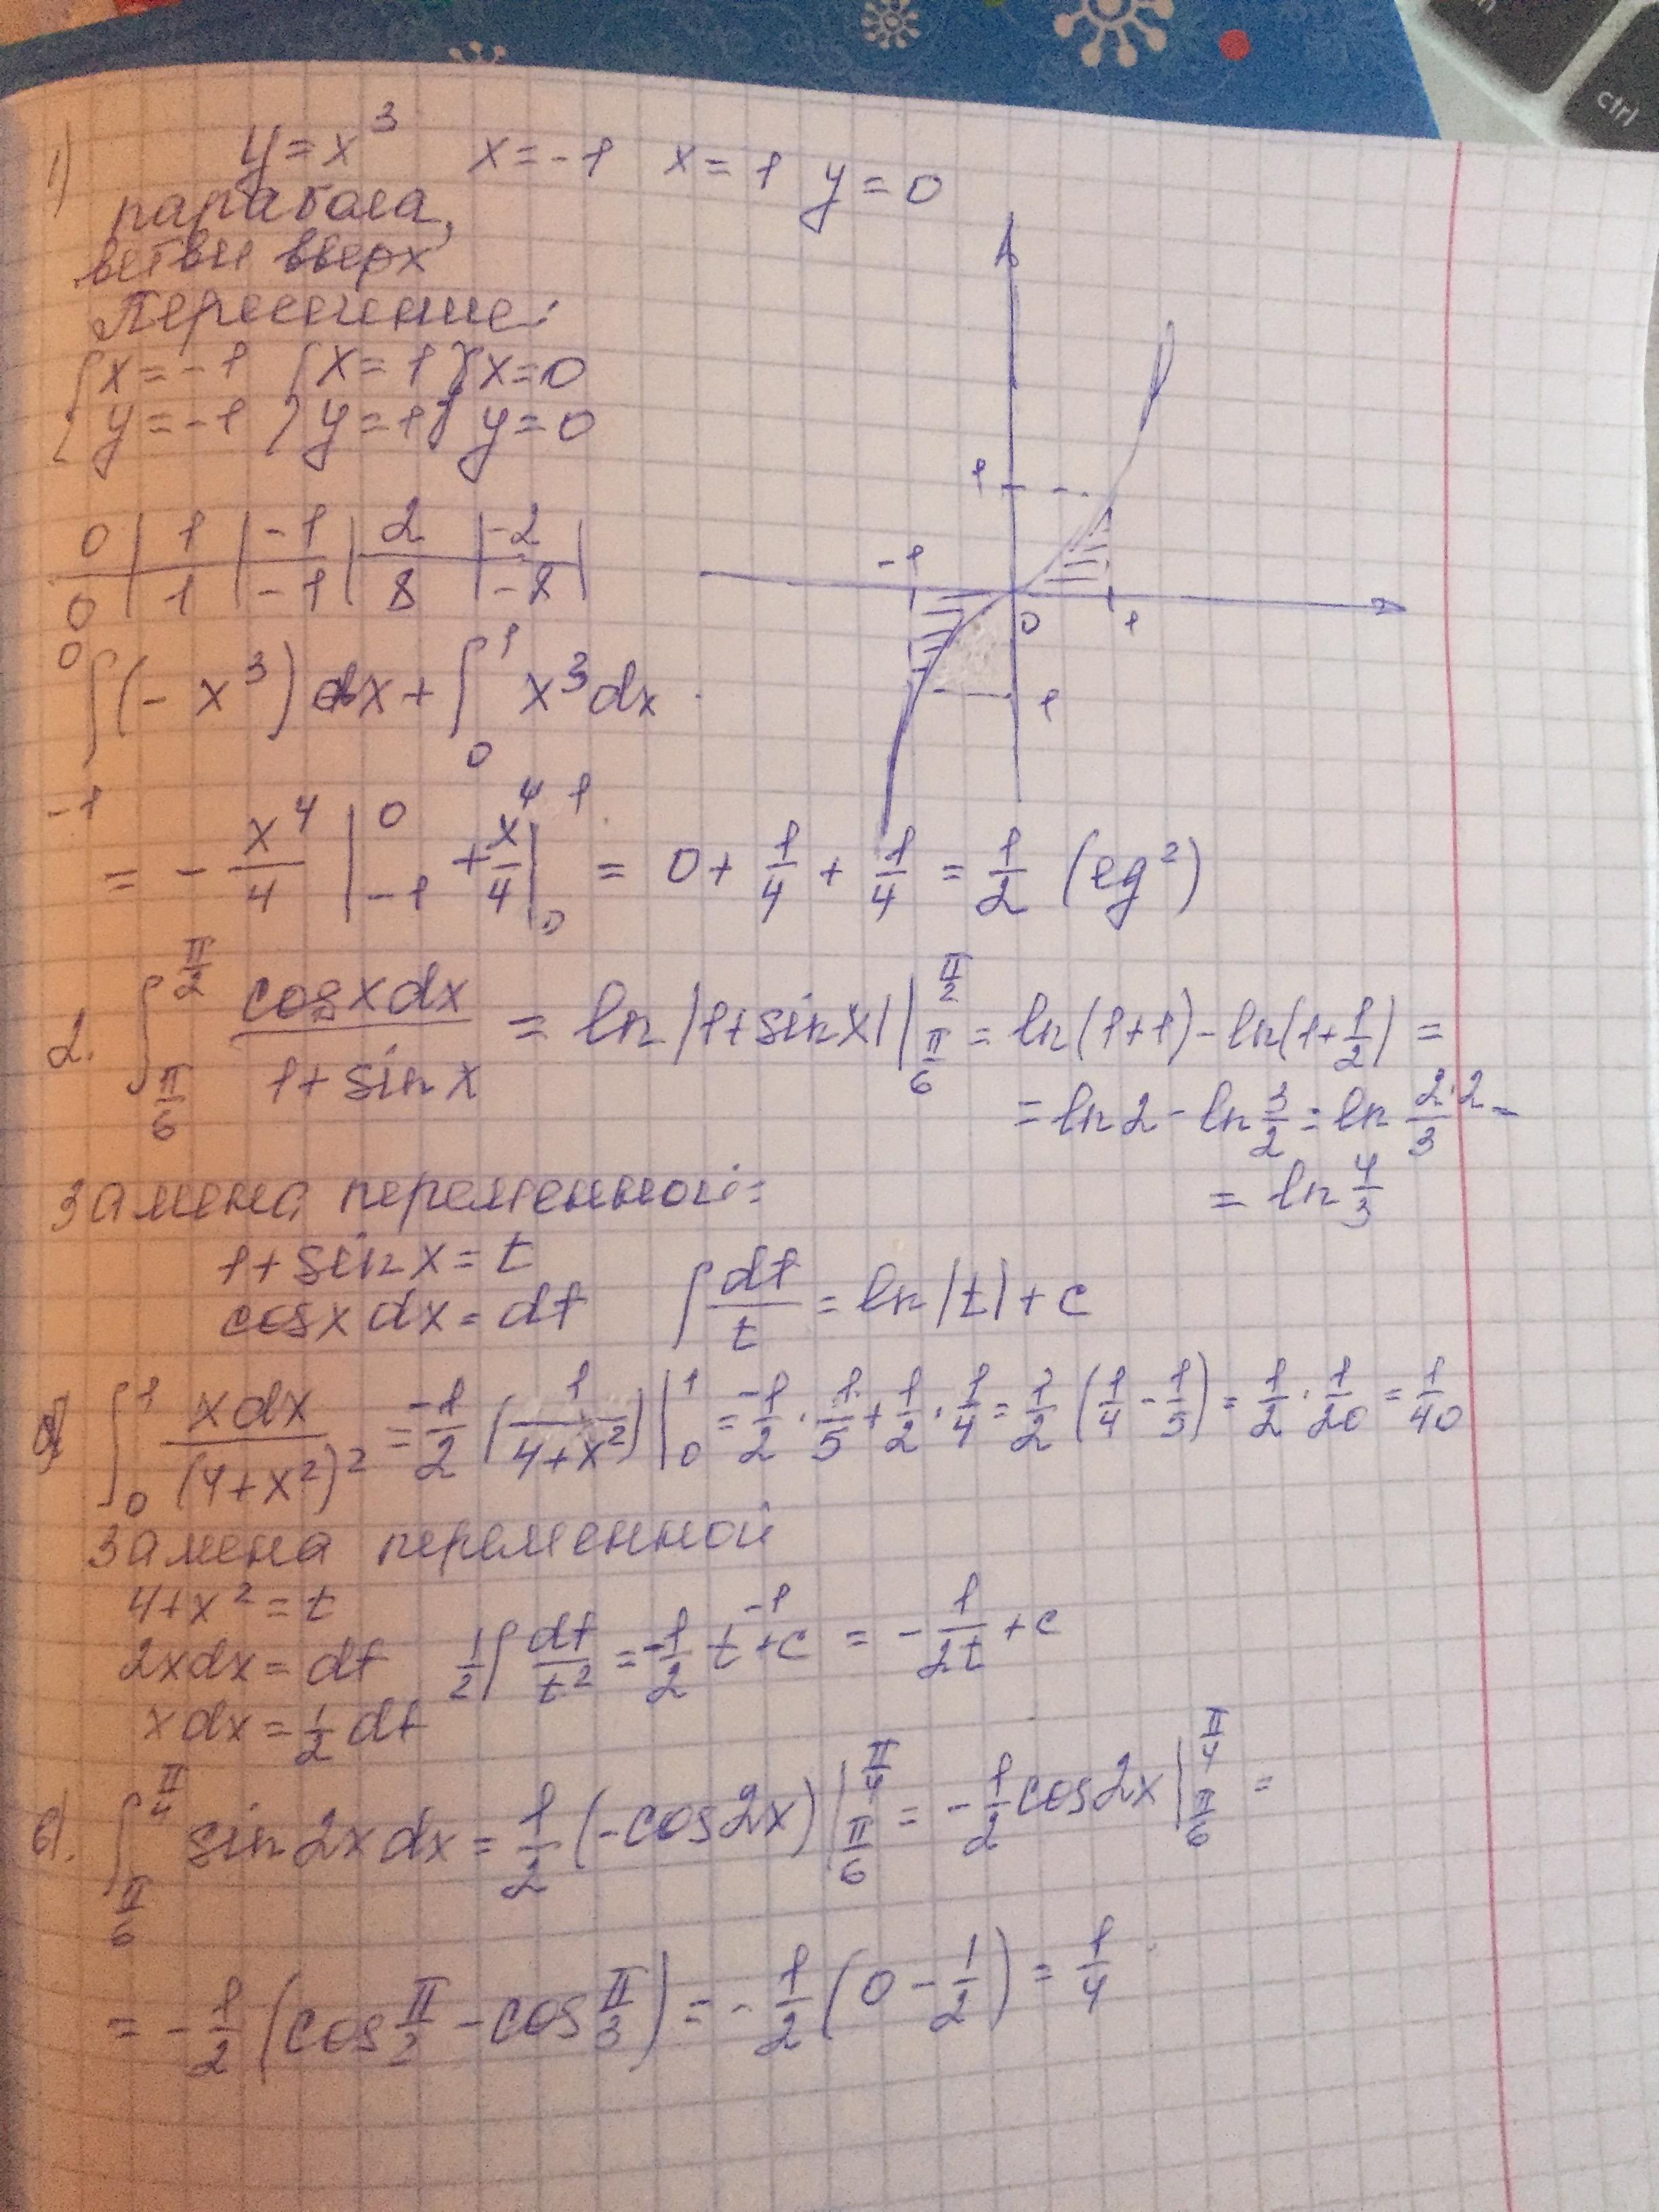 1) y = x³ x = -1 x = 1 y = 0
парабола,
ветви вверх
Пересечение:
{x = -1 {x = 1 {x = 0
{y = -1 {y = 1 {y = 0
0 | 1 | -1 | 2 | -2
0 | 1 | -1 | 8 | -8
1
-1 0 1
1
∫₋₁⁰ (-x³) dx + ∫₀¹ x³ dx
= - x⁴/4 |₋₁⁰ + x⁴/4 |₀¹ = 0 + 1/4 + 1/4 = 1/2 (eg²)
2. ∫_{π/6}^{π/2} cos x dx / (1 + sin x) = ln |1 + sin x| |_{π/6}^{π/2} = ln(1+1) - ln(1 + 1/2) =
= ln 2 - ln 3/2 = ln 2·2/3 =
= ln 4/3
Замена переменной:
1 + sin x = t
cos x dx = dt ∫ dt/t = ln |t| + c
∫₀¹ x dx / (4 + x²)² = -1/2 (1/(4 + x²)) |₀¹ = -1/2 · 1/5 + 1/2 · 1/4 = 1/2 (1/4 - 1/5) = 1/2 · 1/20 = 1/40
Замена переменной
4 + x² = t
2x dx = dt 1/2 ∫ dt/t² = -1/2 t⁻¹ + c = - 1/2t + c
x dx = 1/2 dt
в). ∫_{π/6}^{π/4} sin 2x dx = 1/2 (-cos 2x) |_{π/6}^{π/4} = - 1/2 cos 2x |_{π/6}^{π/4} =
= - 1/2 (cos π/2 - cos π/3) = - 1/2 (0 - 1/2) = 1/4
ctrl